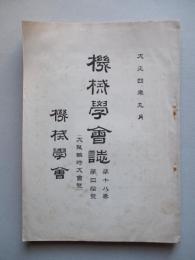 大正四年九月
機械學會誌
第十八卷
第四拾號
(大阪臨時大會號)
機械學會